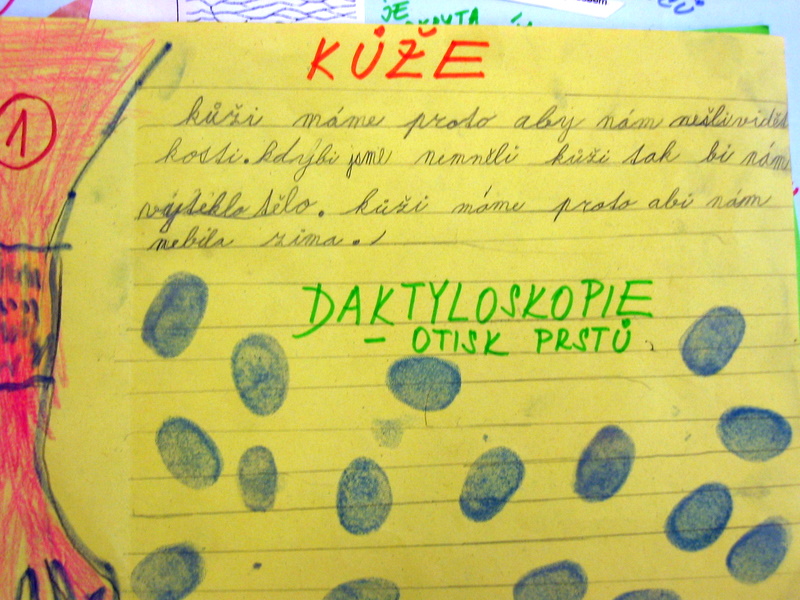 JE
KŮŽE
1
kůži máme proto aby nám nešli vidět
kosti. kdyjbi jsme nemněli kůži tak bi nám
výteklo tělo. kůži máme proto abi nám
nebila zima.
DAKTYLOSKOPIE
- OTISK PRSTŮ